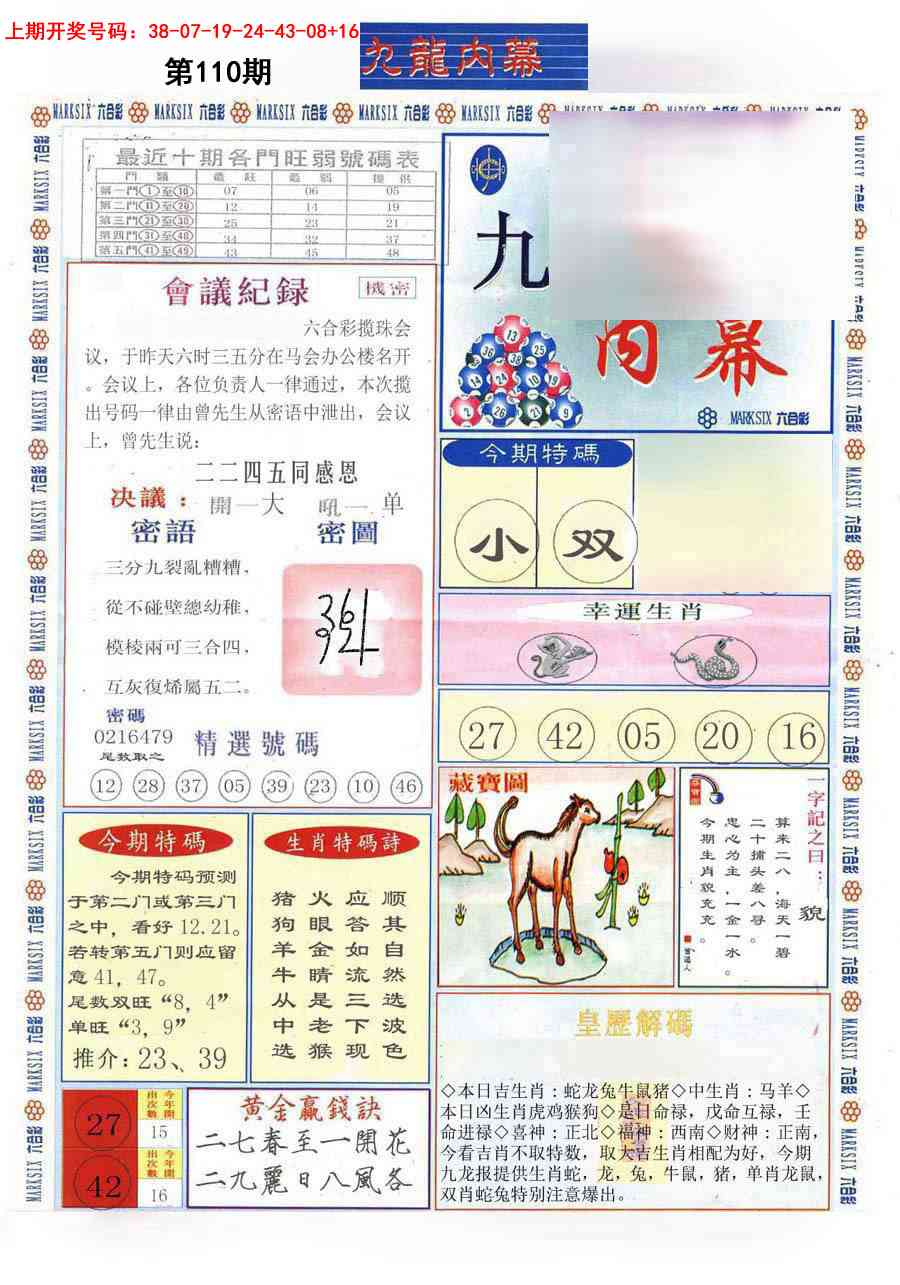 上期开奖号码：38-07-19-24-43-08+16
第110期
九龍内幕
MARKSIX 六合彩 MARKSIX 六合彩 MARKSIX 六合彩 MARKSIX 六合彩 MARKSIX 六合彩
最近十期各門旺弱號碼表
門類 最旺 最弱 提供
第一門①至⑩ 07 06 05
第二門⑪至⑳ 12 14 19
第三門㉑至㉚ 25 23 21
第四門㉛至㊵ 34 32 37
第五門㊶至㊾ 43 45 48
九
内幕
MARKSIX 六合彩
會議紀録
機密
六合彩揽珠会
议，于昨天六时三五分在马会办公楼名开
。会议上，各位负责人一律通过，本次揽
出号码一律由曾先生从密语中泄出，会议
上，曾先生说：
二二四五同感恩
决議：開一大 吼一单
密語 密圖
三分九裂亂糟糟，
從不碰壁總幼稚，
模棱兩可三合四，
互灰復烯屬五二。
密碼
0216479
尾数取之
精選號碼
12 28 37 05 39 23 10 46
今期特碼
小 双
幸運生肖
27 42 05 20 16
藏寶圖
一字記之曰：貌
算来二八，海天一碧
二十捕头差八寻。
忠心为主，一金一水。
今期生肖貌充充。
今期特碼
今期特码预测
于第二门或第三门
之中，看好12.21。
若转第五门则应留
意41，47。
尾数双旺“8，4”
单旺“3，9”
推介：23、39
生肖特碼詩
猪火应顺
狗眼答其
羊金如自
牛睛流然
从是三选
中老下波
选猴现色
27 今年開出次數 15
42 今年開出次數 16
黄金赢錢訣
二七春至一開花
二九麗日八風各
皇歷解碼
◇本日吉生肖：蛇龙兔牛鼠猪◇中生肖：马羊◇
本日凶生肖虎鸡猴狗◇是日命禄，戊命互禄，壬
命进禄◇喜神：正北◇福神：西南◇财神：正南，
今看吉肖不取特数，取大吉生肖相配为好，今期
九龙报提供生肖蛇，龙，兔，牛鼠，猪，单肖龙鼠，
双肖蛇兔特别注意爆出。